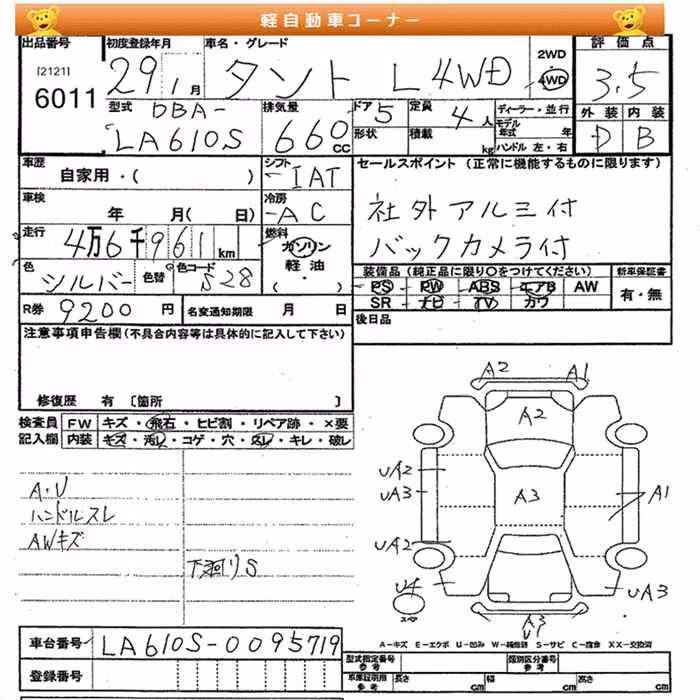 軽自動車コーナー
出品番号 初度登録年月 車名・グレード 2WD 評価点
[2121] 6011 29年1月 タント L 4WD 4WD 3.5
型式 DBA- LA610S 排気量 660 CC ドア 5 定員 4人 ディーラー・並行 外装 内装
形状 積載 kg モデル年式 年 D B
ハンドル 左・右
車歴 シフト セールスポイント (正常に機能するものに限ります)
自家用・( ) -IAT
車検 冷房 社外アルミ付
年 月( 日) -AC
走行 燃料 バックカメラ付
4万6千961km ガソリン
色 色替 色コード 軽油 装備品 (純正品に限り○をつけてください) 新車保証書
シルバー S28 ( ・ ) PS PW ABS エアB AW 有・無
SR ナビ TV カワ
R券 9200円 名変通知期限 月 日 後日品
注意事項申告欄 (不具合内容等は具体的に記入して下さい)
修復歴 有 [箇所 ]
検査員 FW キズ・飛石・ヒビ割・リペア跡・×要
記入欄 内装 キズ・汚レ・コゲ・穴・スレ・キレ・破レ
A2 A1
A2
UA2
A・U UA3 A3 A1
ハンドルスレ
AWキズ UA2
下廻りS U4 UA3
A3
U1
A-キズ E-エクボ U-凹み W-補修跡 S-サビ C-腐食 XX-交換済
車台番号 LA610S-0095719
型式指定番号 参考 類別区分番号 参考
登録番号 車庫証明用 参考 長さ cm 幅 cm 高さ cm